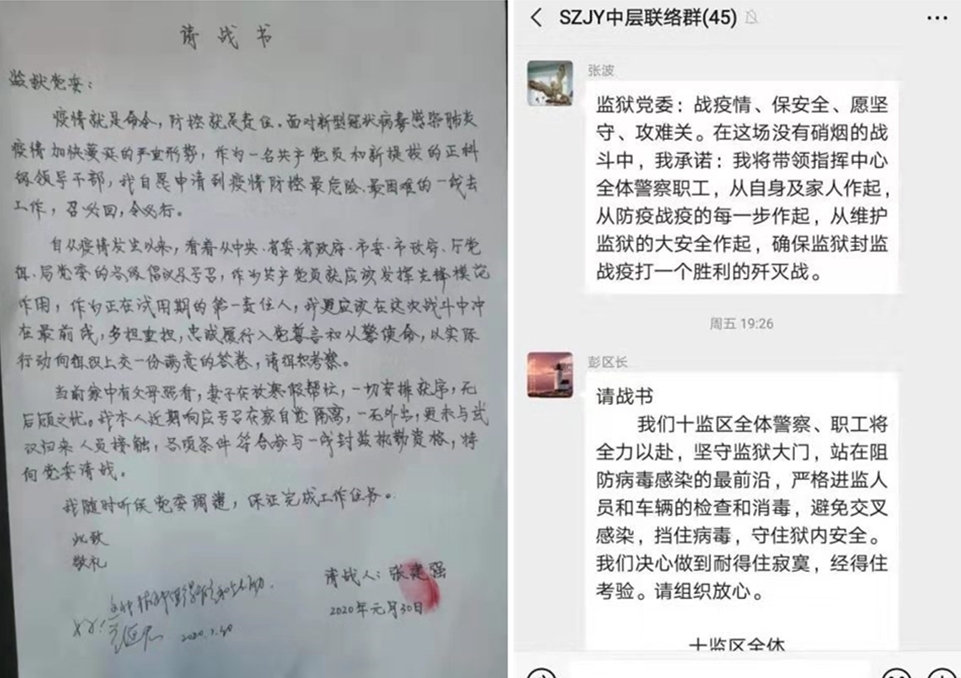 请战书
监狱党委：
疫情就是命令，防控就是责任。面对新型冠状病毒感染肺炎
疫情加快蔓延的严重形势，作为一名共产党员和新提拔的正科
级领导干部，我自愿申请到疫情防控最危险、最困难的一线去
工作，召必回，令必行。
自从疫情发生以来，看着从中央、省委、省政府、市委、市政府、厅党
组、局党委的各级倡议及号召，作为共产党员就应该发挥先锋模范
作用，作为正在试用期的第一责任人，我更应该在这次战斗中冲
在最前线，多担重担，忠诚履行入党誓言和从警使命，以实际
行动向组织上交一份满意的答卷，请组织考察。
当前家中有父母照看，妻子在放寒假帮忙，一切安排就序，无
后顾之忧。我本人近期响应号召在家自觉隔离，一无外出，更未与武
汉归来人员接触，各项条件符合参与一线封监执勤资格，特
向党委请战。
我随时听侯党委调遣，保证完成工作任务。
此致
敬礼
请战人：张建强
2020年元月30日
SZJY中层联络群(45)
张波
监狱党委：战疫情、保安全、愿坚
守、攻难关。在这场没有硝烟的战
斗中，我承诺：我将带领指挥中心
全体警察职工，从自身及家人作起，
从防疫战疫的每一步作起，从维护
监狱的大安全作起，确保监狱封监
战疫打一个胜利的歼灭战。
周五 19:26
彭区长
请战书
我们十监区全体警察、职工将
全力以赴，坚守监狱大门，站在阻
防病毒感染的最前沿，严格进监人
员和车辆的检查和消毒，避免交叉
感染，挡住病毒，守住狱内安全。
我们决心做到耐得住寂寞，经得住
考验。请组织放心。
十监区全体